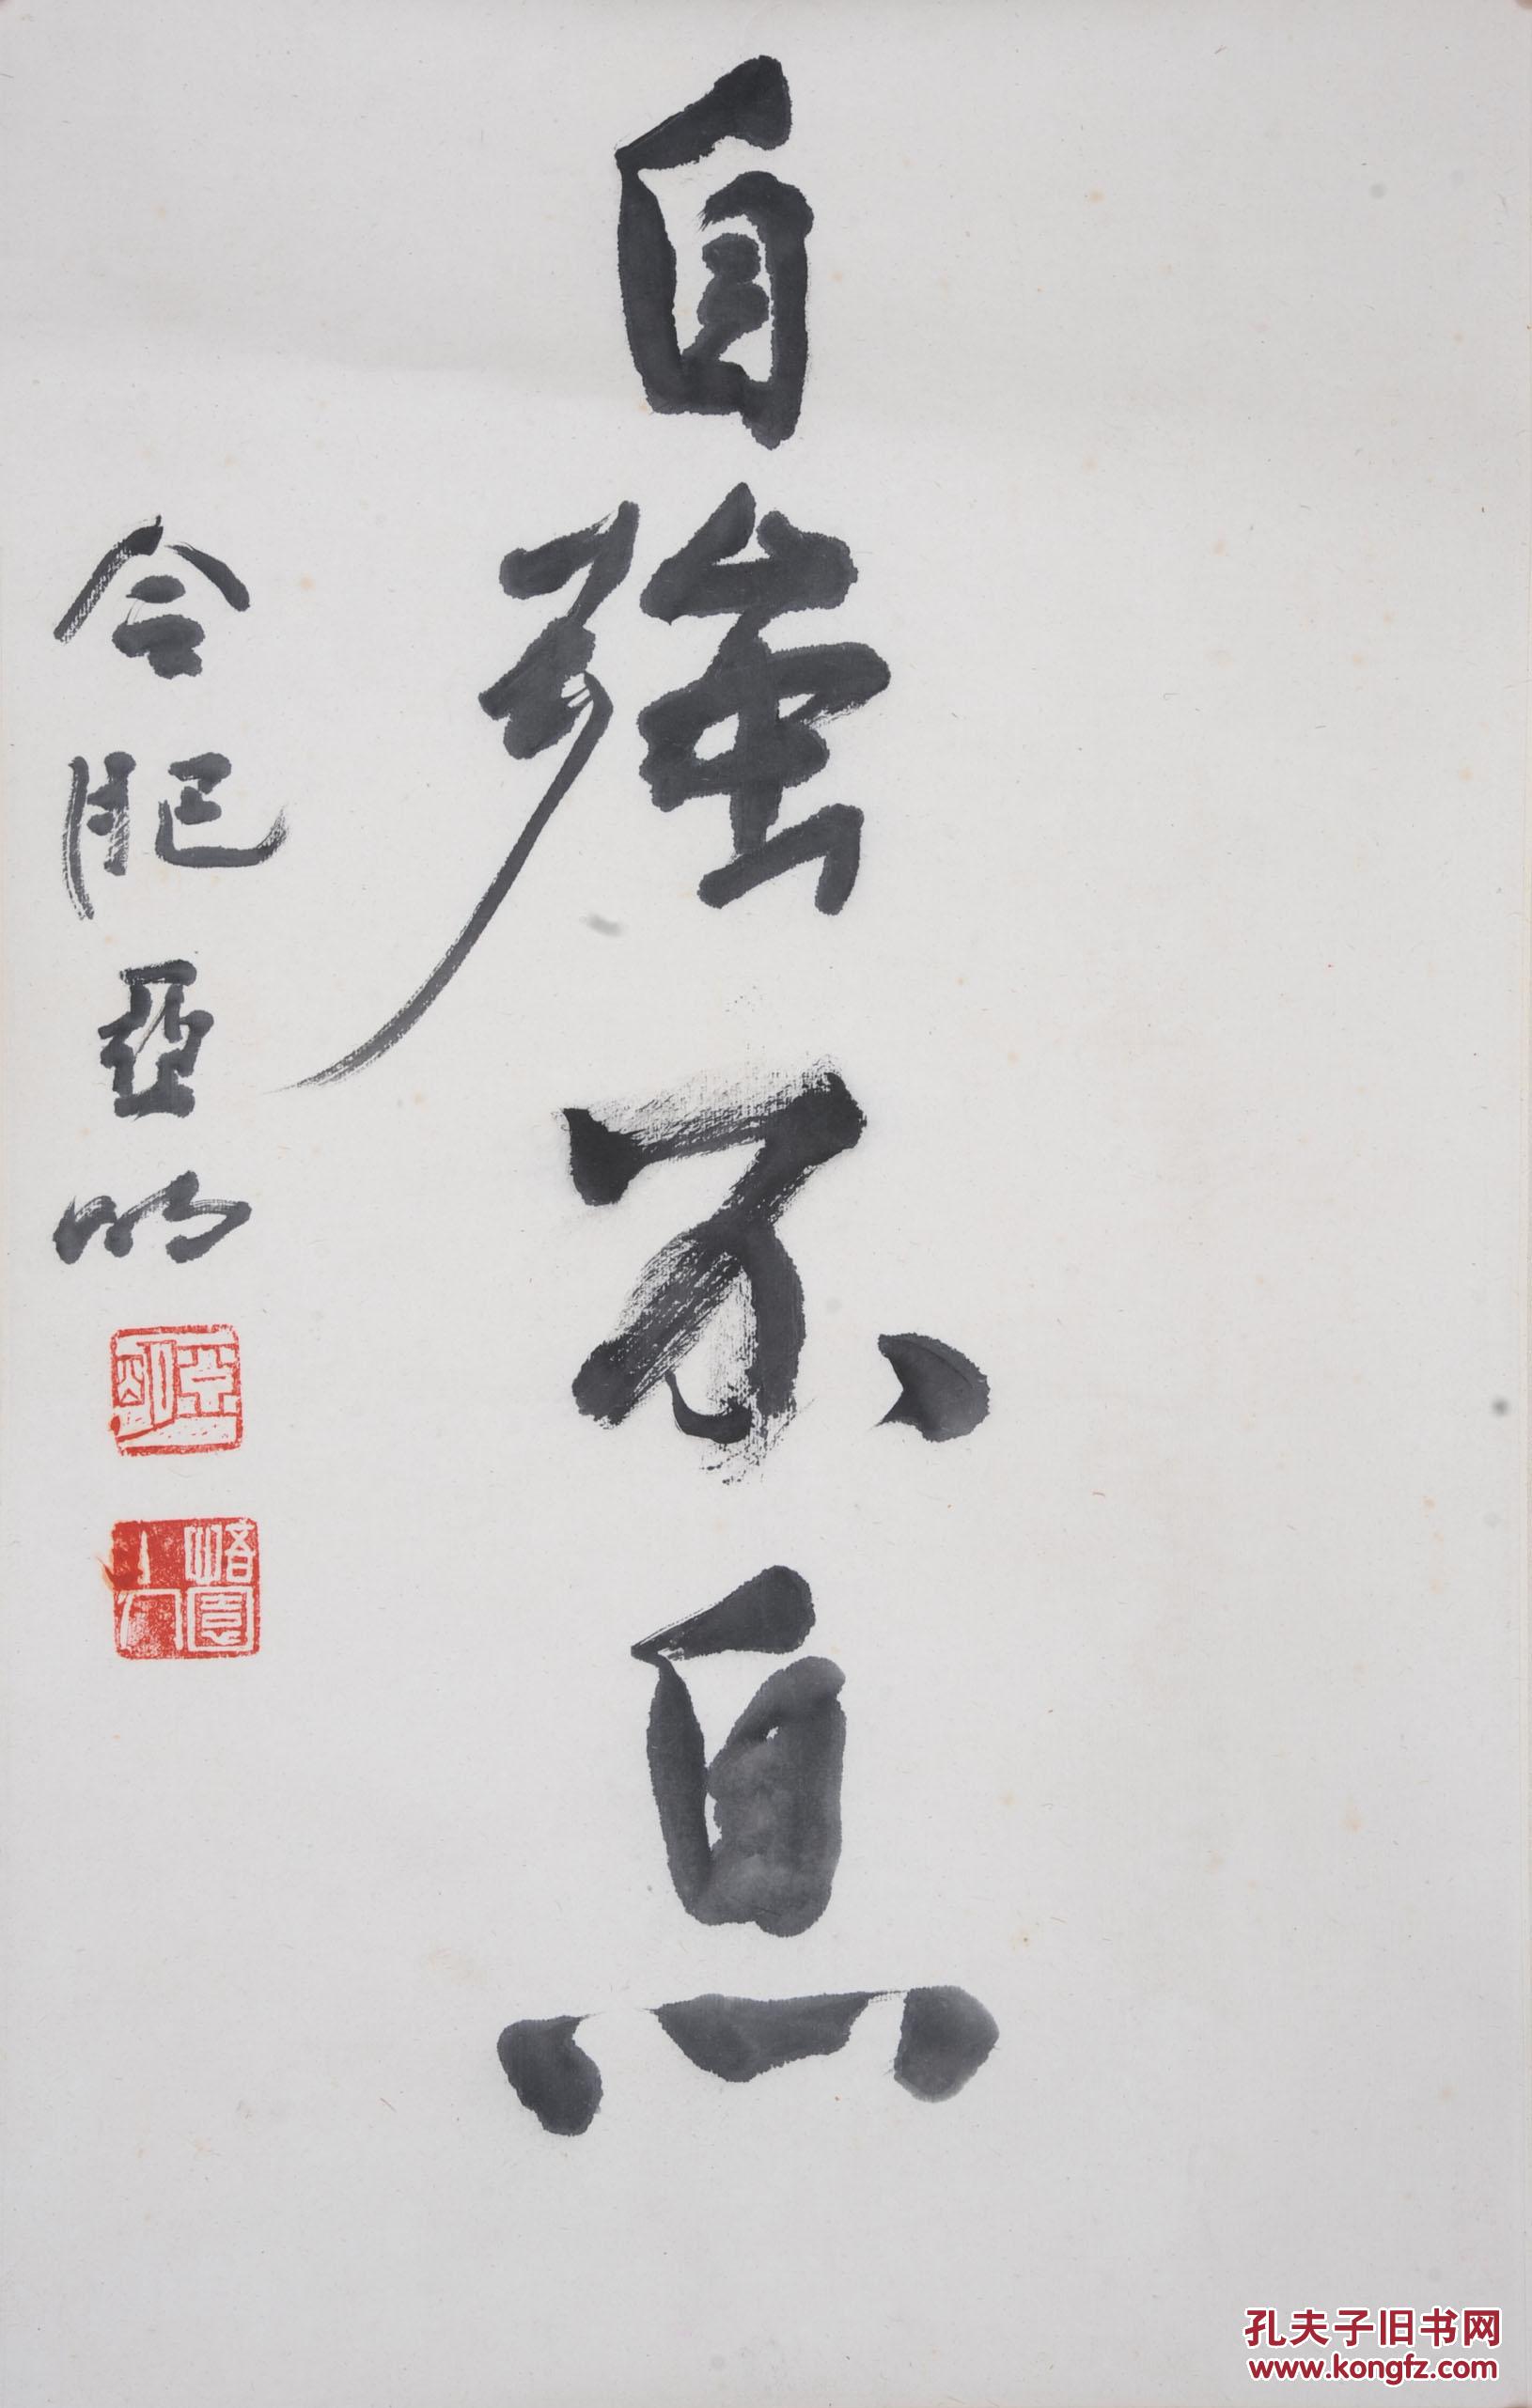 自強不息
合肥亞明
孔夫子旧书网
www.kongfz.com